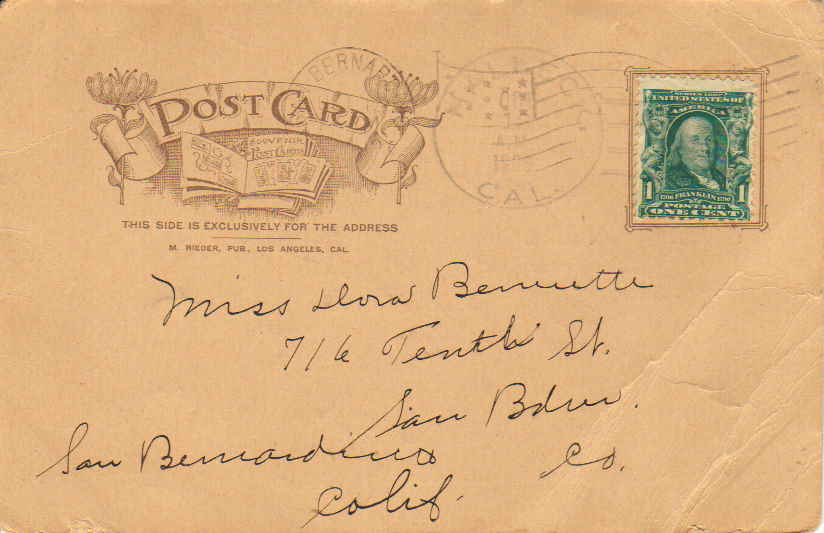 POST CARD
SOUVENIR
POST CARDS
THIS SIDE IS EXCLUSIVELY FOR THE ADDRESS
M. RIEDER, PUB., LOS ANGELES, CAL.
BERNARD
CAL.
SERIES 1902
UNITED STATES OF
AMERICA
1 FRANKLIN 1
POSTAGE
ONE CENT
Miss Dora Bennette
716 Tenth St.
San Bdno.
San Bernardino Co.
Calif.